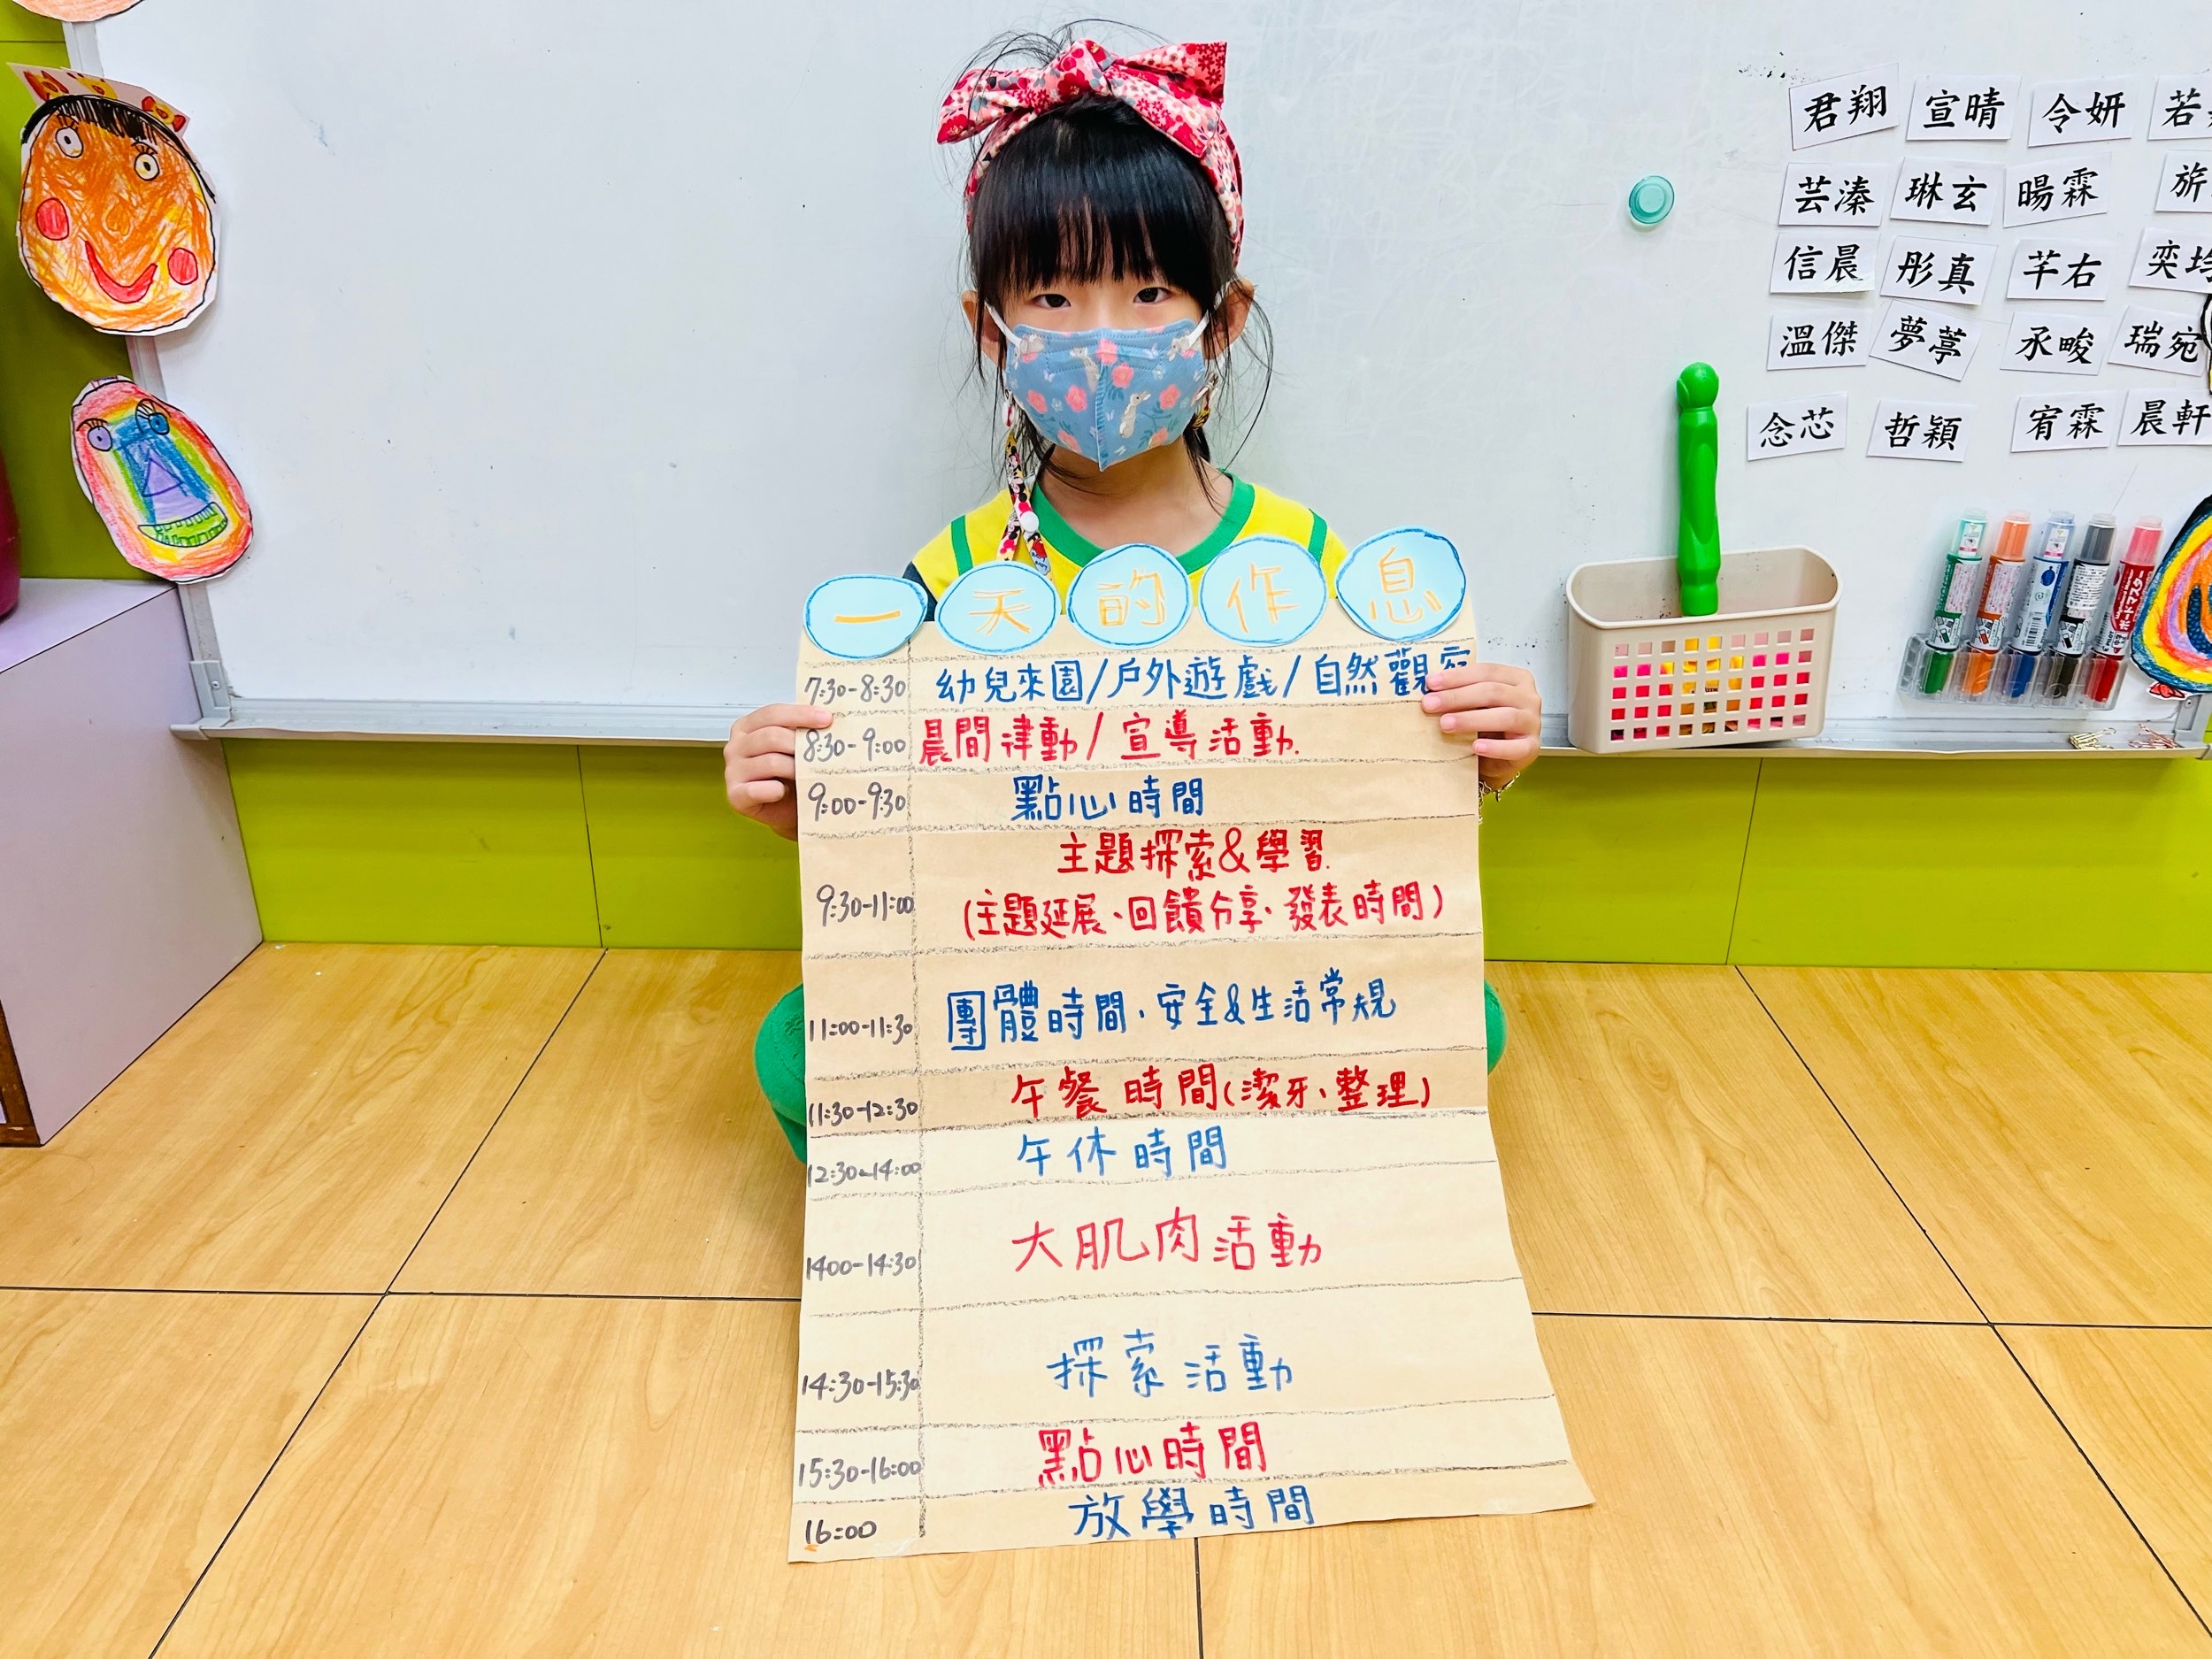 一天的作息
7:30-8:30 幼兒來園/戶外遊戲/自然觀察
8:30-9:00 晨間律動/宣導活動.
9:00-9:30 點心時間
9:30-11:00 主題探索&學習.
(主題延展、回饋分享、發表時間)
11:00-11:30 團體時間、安全&生活常規
11:30-12:30 午餐時間(潔牙、整理)
12:30-14:00 午休時間
1400-14:30 大肌肉活動
14:30-15:30 探索活動
15:30-16:00 點心時間
16:00 放學時間
君翔 宣晴 令妍 若
芸溱 琳玄 暘霖 旂
信晨 彤真 芊右 奕均
溫傑 夢葶 承畯 瑞宛
念芯 哲穎 宥霖 晨軒